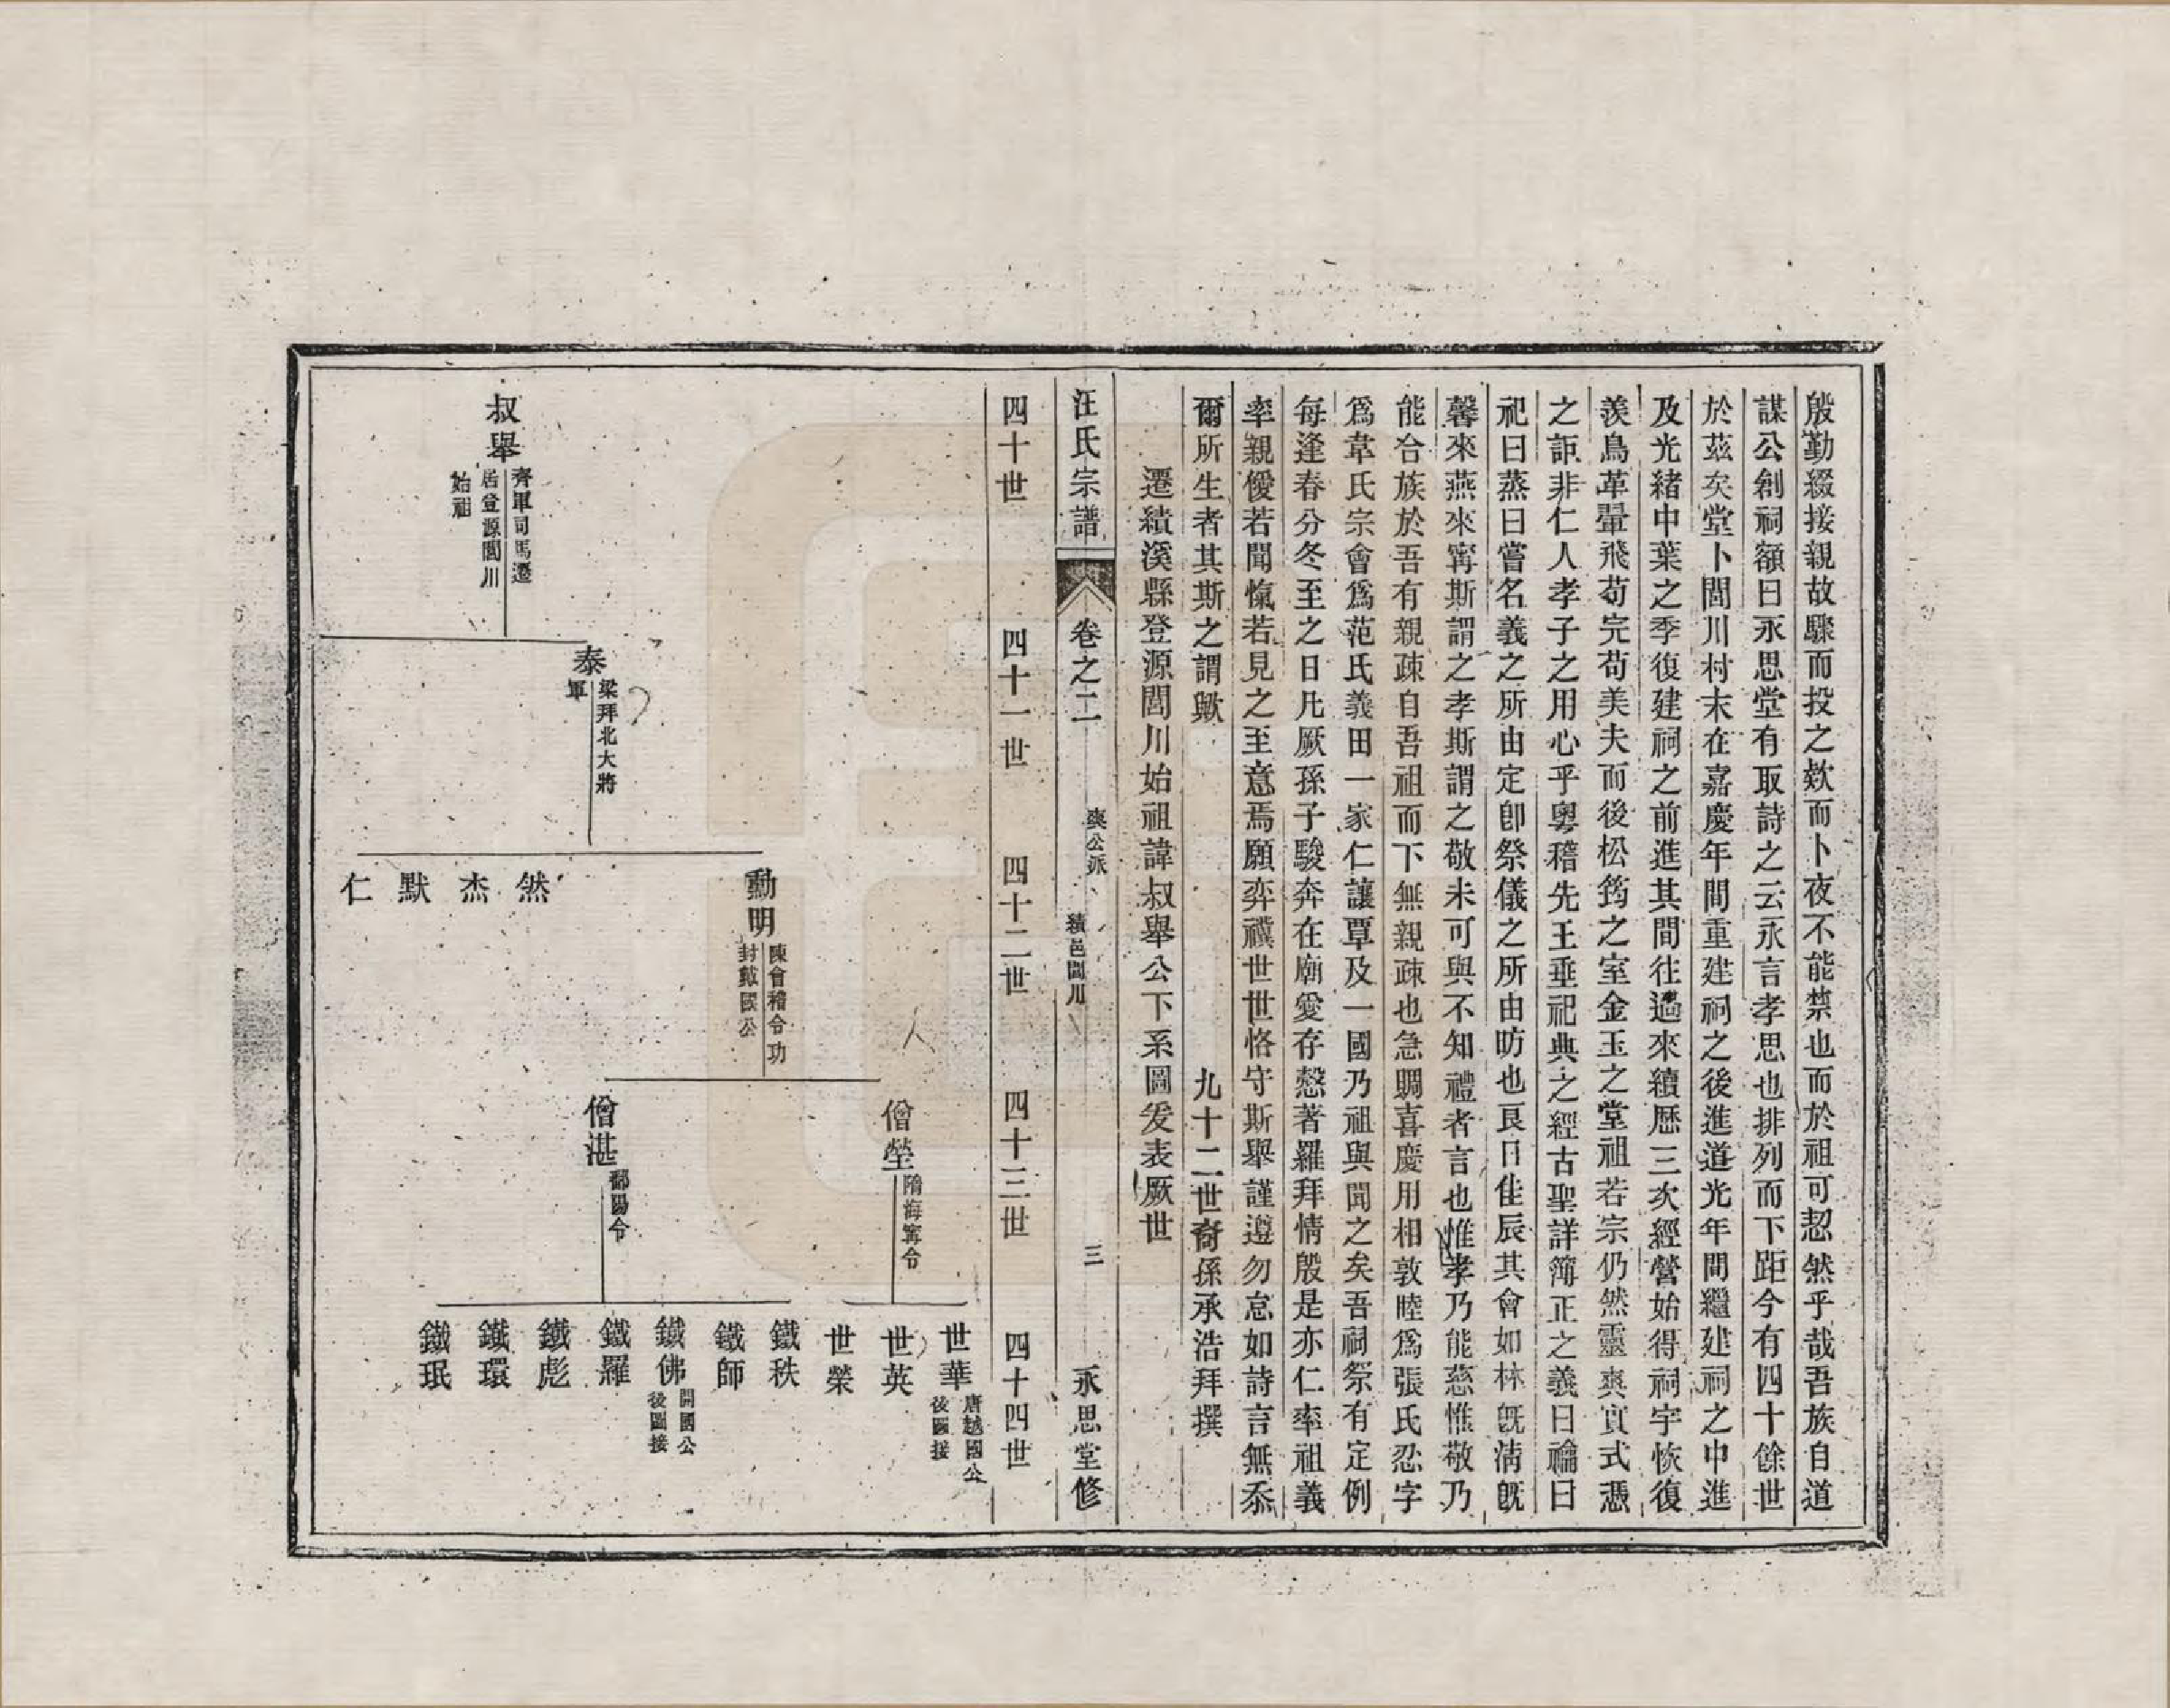 殷勤綴接親故驟而投之欵而卜夜不能禁也而於祖可恝然乎哉吾族自道
謀公創祠額曰永思堂有取詩之云永言孝思也排列而下距今有四十餘世
於茲矣堂卜閭川村末在嘉慶年間重建祠之後進道光年間繼建祠之中進
及光緒中葉之季復建祠之前進其間往過來續歷三次經營始得祠宇恢復
羨鳥革翬飛苟完苟美夫而後松筠之室金玉之堂祖若宗仍然靈爽實式憑
之詎非仁人孝子之用心乎粵稽先王垂祀典之經古聖詳簿正之義曰禴曰
祀曰蒸曰嘗名義之所由定卽祭儀之所由昉也艮日佳辰其會如林旣淸旣
馨來燕來甯斯謂之孝斯謂之敬未可與不知禮者言也惟孝乃能慈惟敬乃
能合族於吾有親疎自吾祖而下無親疎也急賙喜慶用相敦睦爲張氏忍字
爲韋氏宗會爲范氏義田一家仁讓覃及一國乃祖與聞之矣吾祠祭有定例
每逢春分冬至之日凡厥孫子駿奔在廟愛存慤著羅拜情殷是亦仁率祖義
率親僾若聞愾若見之至意焉願弈禩世世恪守斯舉謹遵勿怠如詩言無忝
爾所生者其斯之謂歟
九十二世裔孫承浩拜撰
遷績溪縣登源閭川始祖諱叔舉公下系圖爰表厥世
汪氏宗譜 卷之二 爽公派 績邑閭川 三 永思堂修
四十世 四十一世 四十二世 四十三世 四十四世
世華 唐越國公
後圖接
世英
世榮
僧瑩 隋海甯令
鐵秩
鐵師
鐵佛 開國公
後圖接
鐵羅
鐵彪
鐵環
鐵珉
僧湛 鄱陽令
勳明 陳會稽令功
封戴國公
然
杰
默
仁
泰 梁拜北大將
軍
叔舉 齊軍司馬遷
居登源閭川
始祖